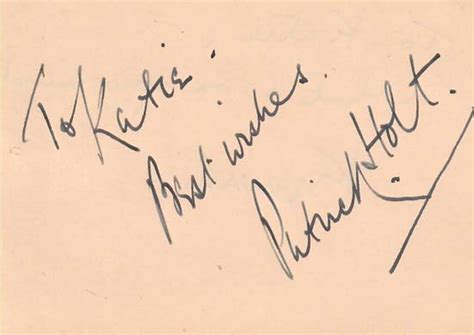 To Katie.
Best wishes.
Patrick Holt.